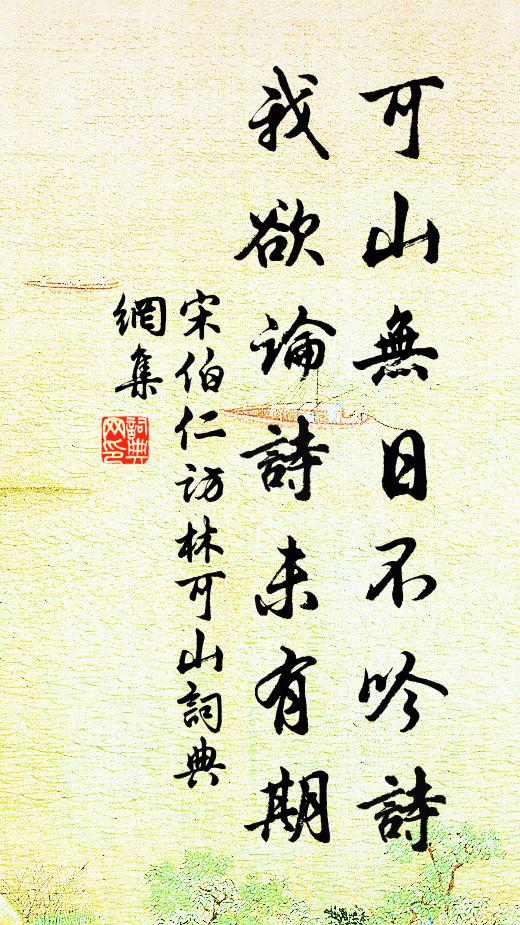 可山無日不吟詩
我欲論詩未有期
宋伯仁访林可山詞典
網集
詞典
网印